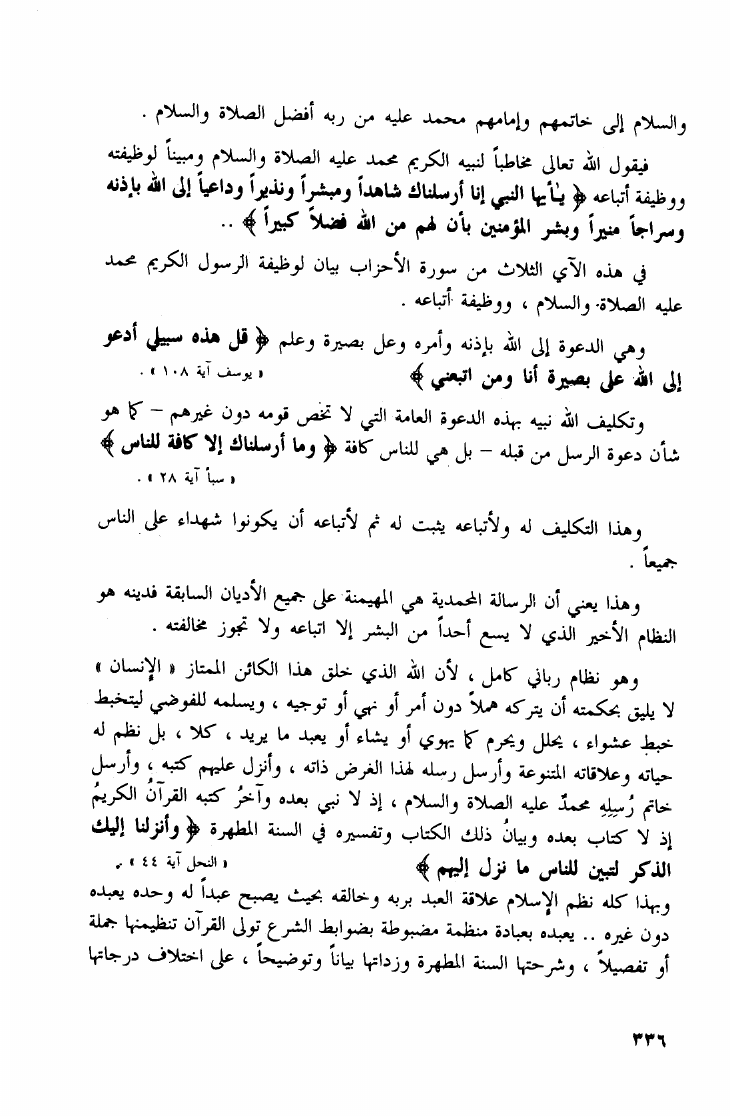 والسلام إلى خاتمهم وإمامهم محمد عليه من ربه أفضل الصلاة والسلام .
فيقول الله تعالى مخاطباً لنبيه الكريم محمد عليه الصلاة والسلام ومبيناً لوظيفته
ووظيفة أتباعه ﴿ يـٰأيها النبي إنا أرسلناك شاهداً ومبشراً ونذيراً وداعياً إلى الله بإذنه
وسراجاً منيراً وبشر المؤمنين بأن لهم من الله فضلاً كبيراً ﴾ ..
في هذه الآي الثلاث من سورة الأحزاب بيان لوظيفة الرسول الكريم محمد
عليه الصلاة والسلام ، ووظيفة أتباعه .
وهي الدعوة إلى الله بإذنه وأمره وعلى بصيرة وعلم ﴿ قل هذه سبيلي أدعو
إلى الله على بصيرة أنا ومن اتبعني ﴾ « يوسف آية ١٠٨ » .
وتكليف الله نبيه بهذه الدعوة العامة التي لا تخص قومه دون غيرهم – كما هو
شأن دعوة الرسل من قبله – بل هي للناس كافة ﴿ وما أرسلناك إلا كافة للناس ﴾
« سبأ آية ٢٨ » .
وهذا التكليف له ولأتباعه يثبت له ثم لأتباعه أن يكونوا شهداء على الناس
جميعاً .
وهذا يعني أن الرسالة المحمدية هي المهيمنة على جميع الأديان السابقة فدينه هو
النظام الأخير الذي لا يسع أحداً من البشر إلا اتباعه ولا تجوز مخالفته .
وهو نظام رباني كامل ، لأن الله الذي خلق هذا الكائن الممتاز « الإنسان »
لا يليق بحكمته أن يتركه هملاً دون أمر أو نهي أو توجيه ، ويسلمه للفوضي ليتخبط
خبط عشواء ، يحلل ويحرم كما يهوي أو يشاء أو يعبد ما يريد ، كلا ، بل نظم له
حياته وعلاقاته المتنوعة وأرسل رسله لهذا الغرض ذاته ، وأنزل عليهم كتبه ، وأرسل
خاتم رُسِلِهِ محمدٌ عليه الصلاة والسلام ، إذ لا نبي بعده وآخرُ كتبه القرآنُ الكريمُ
إذ لا كتاب بعده وبيانُ ذلك الكتاب وتفسيره في السنة المطهرة ﴿ وأنزلنا إليك
الذكر لتبين للناس ما نزل إليهم ﴾ « النحل آية ٤٤ » .
وبهذا كله نظم الإسلام علاقة العبد بربه وخالقه بحيث يصبح عبداً له وحده يعبده
دون غيره .. يعبده بعبادة منظمة مضبوطة بضوابط الشرع تولى القرآن تنظيمها جملة
أو تفصيلاً ، وشرحتها السنة المطهرة وزداتها بياناً وتوضيحاً ، على اختلاف درجاتها
٣٣٦